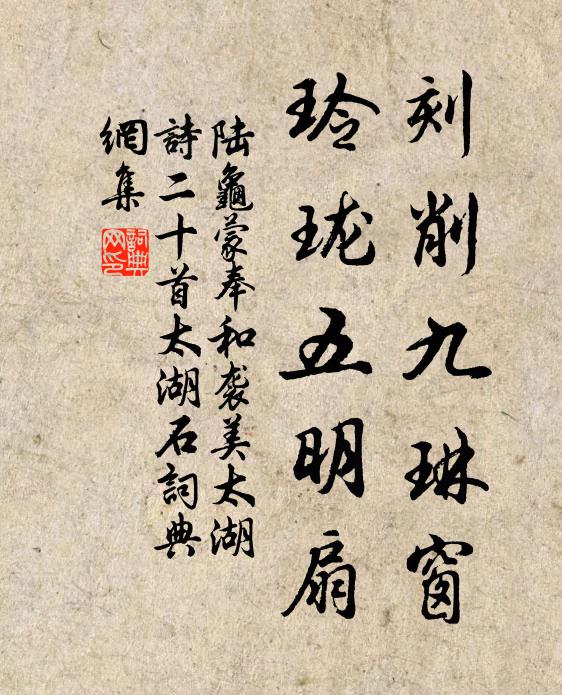 刻削九琳窗
玲珑五明扇
陆龜蒙奉和袭美太湖
詩二十首太湖石詞典
網集
詞典网印